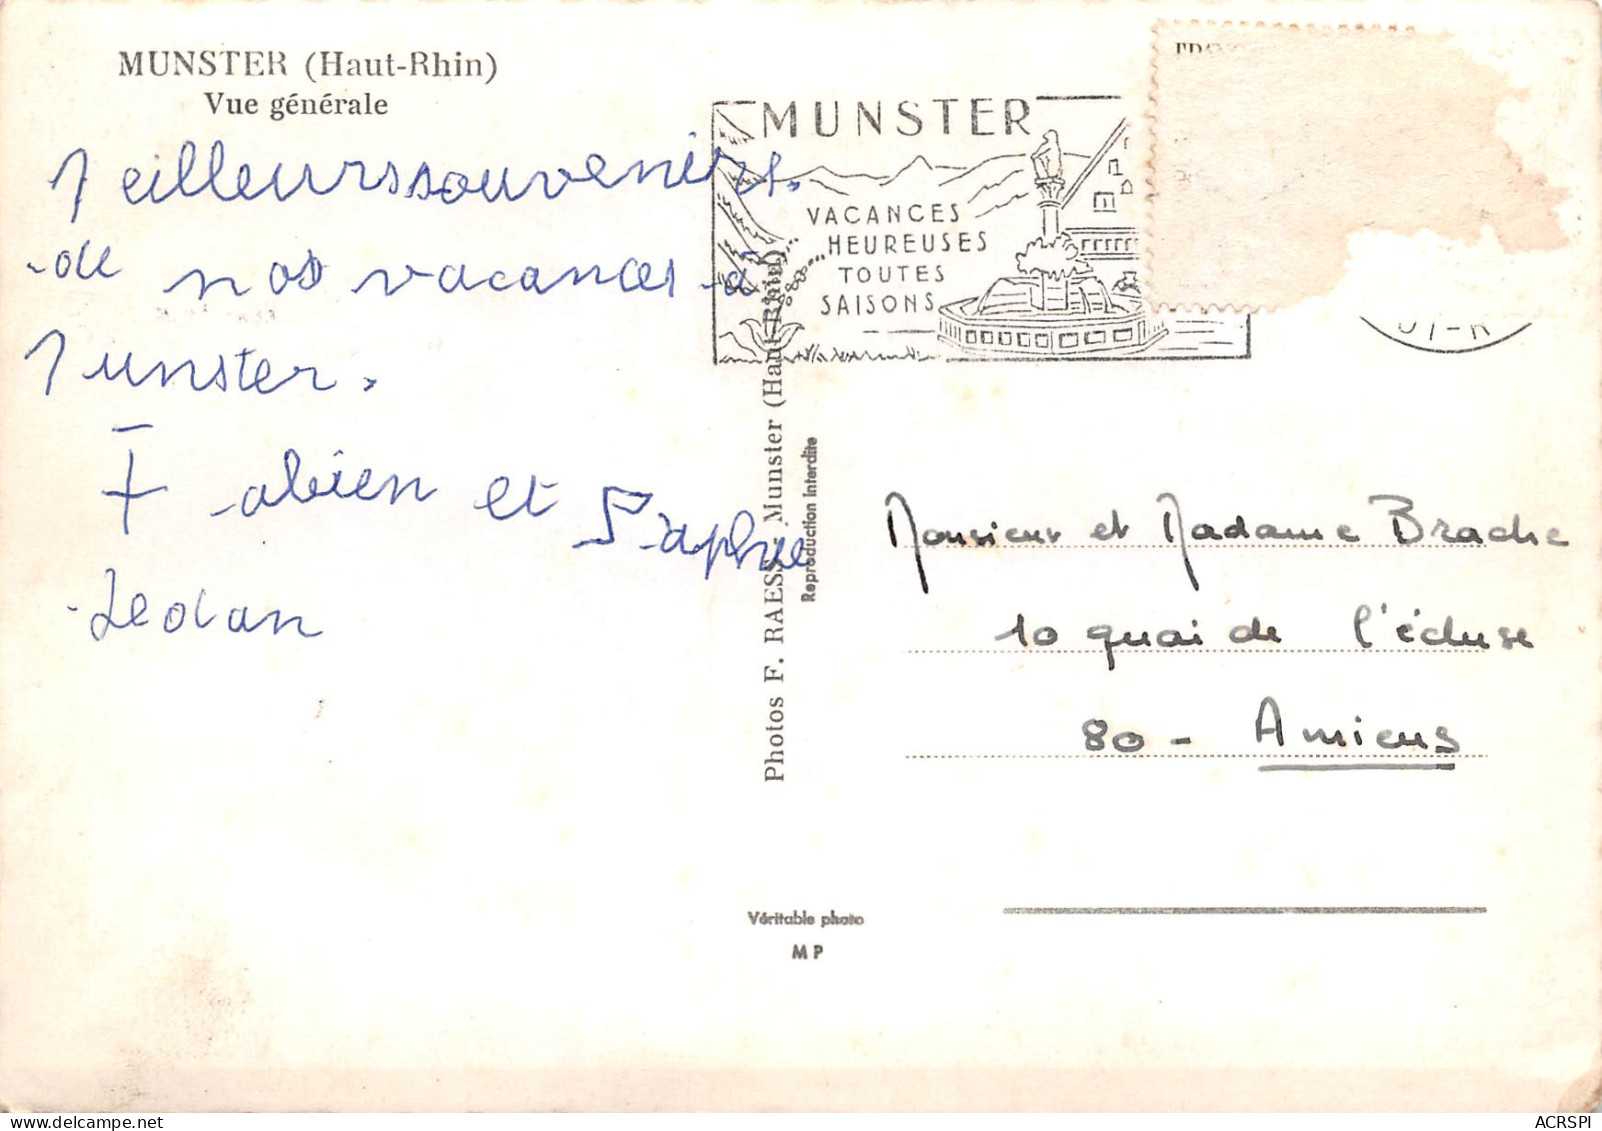 MUNSTER (Haut-Rhin)
Vue générale
Meilleurs souvenirs
de nos vacances à
Munster.
Fabien et Saphie
Ledan
MUNSTER
VACANCES
...HEUREUSES...
TOUTES
SAISONS
Photos F. RAESS, Munster (Haut-Rhin)
Reproduction interdite
Monsieur et Madame Brache
10 quai de l'écluse
80 - Amiens
Véritable photo
MP
ACRSPI